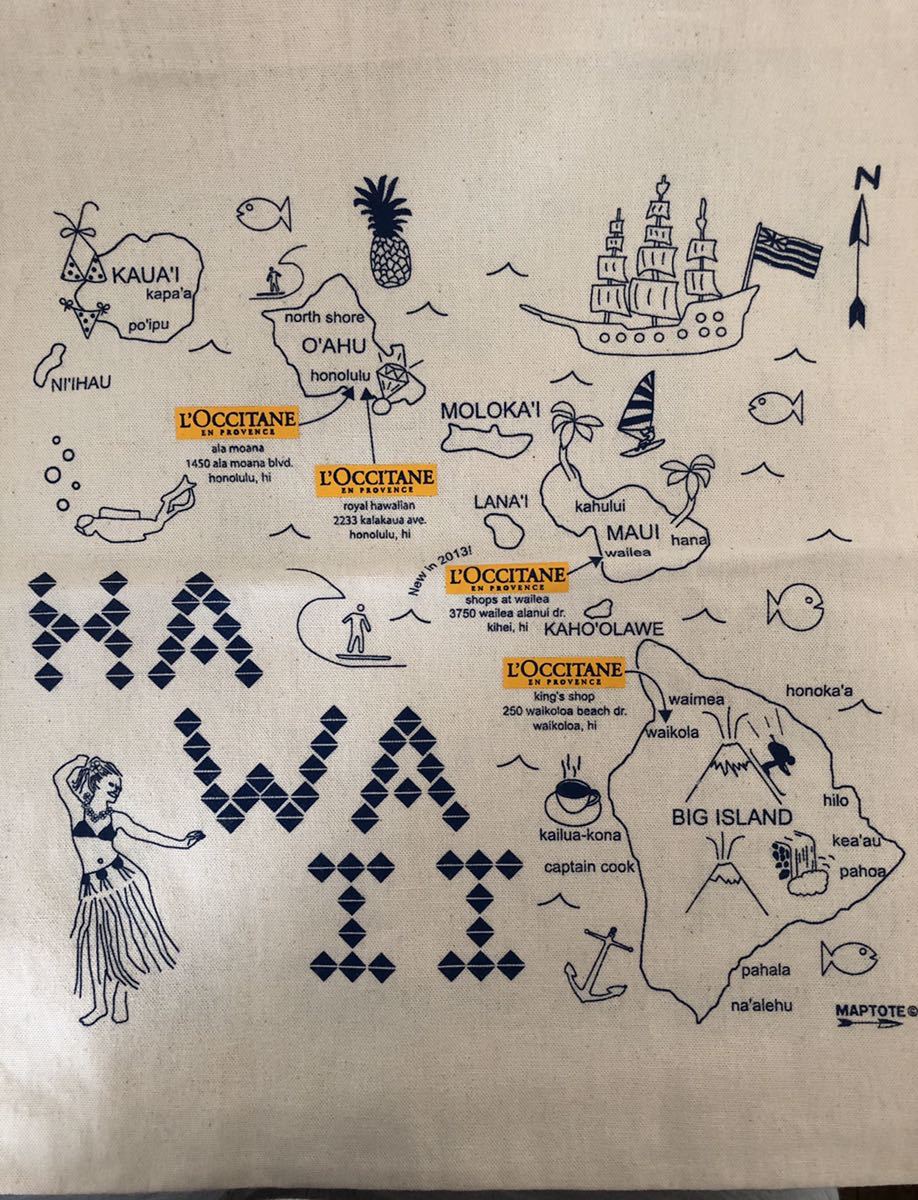 N
KAUA'I
kapa'a
po'ipu
NI'IHAU
north shore
O'AHU
honolulu
L'OCCITANE
EN PROVENCE
ala moana
1450 ala moana blvd.
honolulu, hi
L'OCCITANE
EN PROVENCE
royal hawalian
2233 kalakaua ave.
honolulu, hi
MOLOKA'I
LANA'I
kahului
MAUI
hana
wailea
New in 2013!
L'OCCITANE
EN PROVENCE
shops at wailea
3750 wailea alanui dr.
kihei, hi
KAHO'OLAWE
L'OCCITANE
EN PROVENCE
king's shop
250 waikoloa beach dr.
waikoloa, hi
waimea
honoka'a
waikola
BIG ISLAND
hilo
kea'au
pahoa
kailua-kona
captain cook
pahala
na'alehu
HA
WA
II
MAPTOTE©